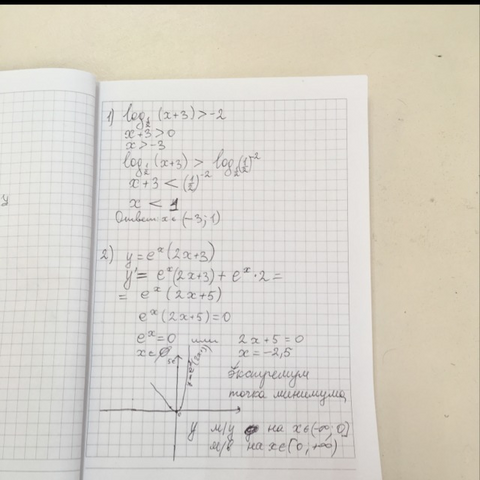 1) log_{1/2} (x+3) > -2
x+3 > 0
x > -3
log_{1/2} (x+3) > log_{1/2} (1/2)^{-2}
x+3 < (1/2)^{-2}
x < 1
Ответ: x ∈ (-3; 1)
2) y = e^x (2x+3)
y' = e^x (2x+3) + e^x · 2 =
= e^x (2x+5)
e^x (2x+5) = 0
e^x = 0 или 2x+5 = 0
x = -2,5
Экстремум
точка минимума
y м/у на x ∈ (-∞; 0]
м/в на x ∈ [0; +∞)